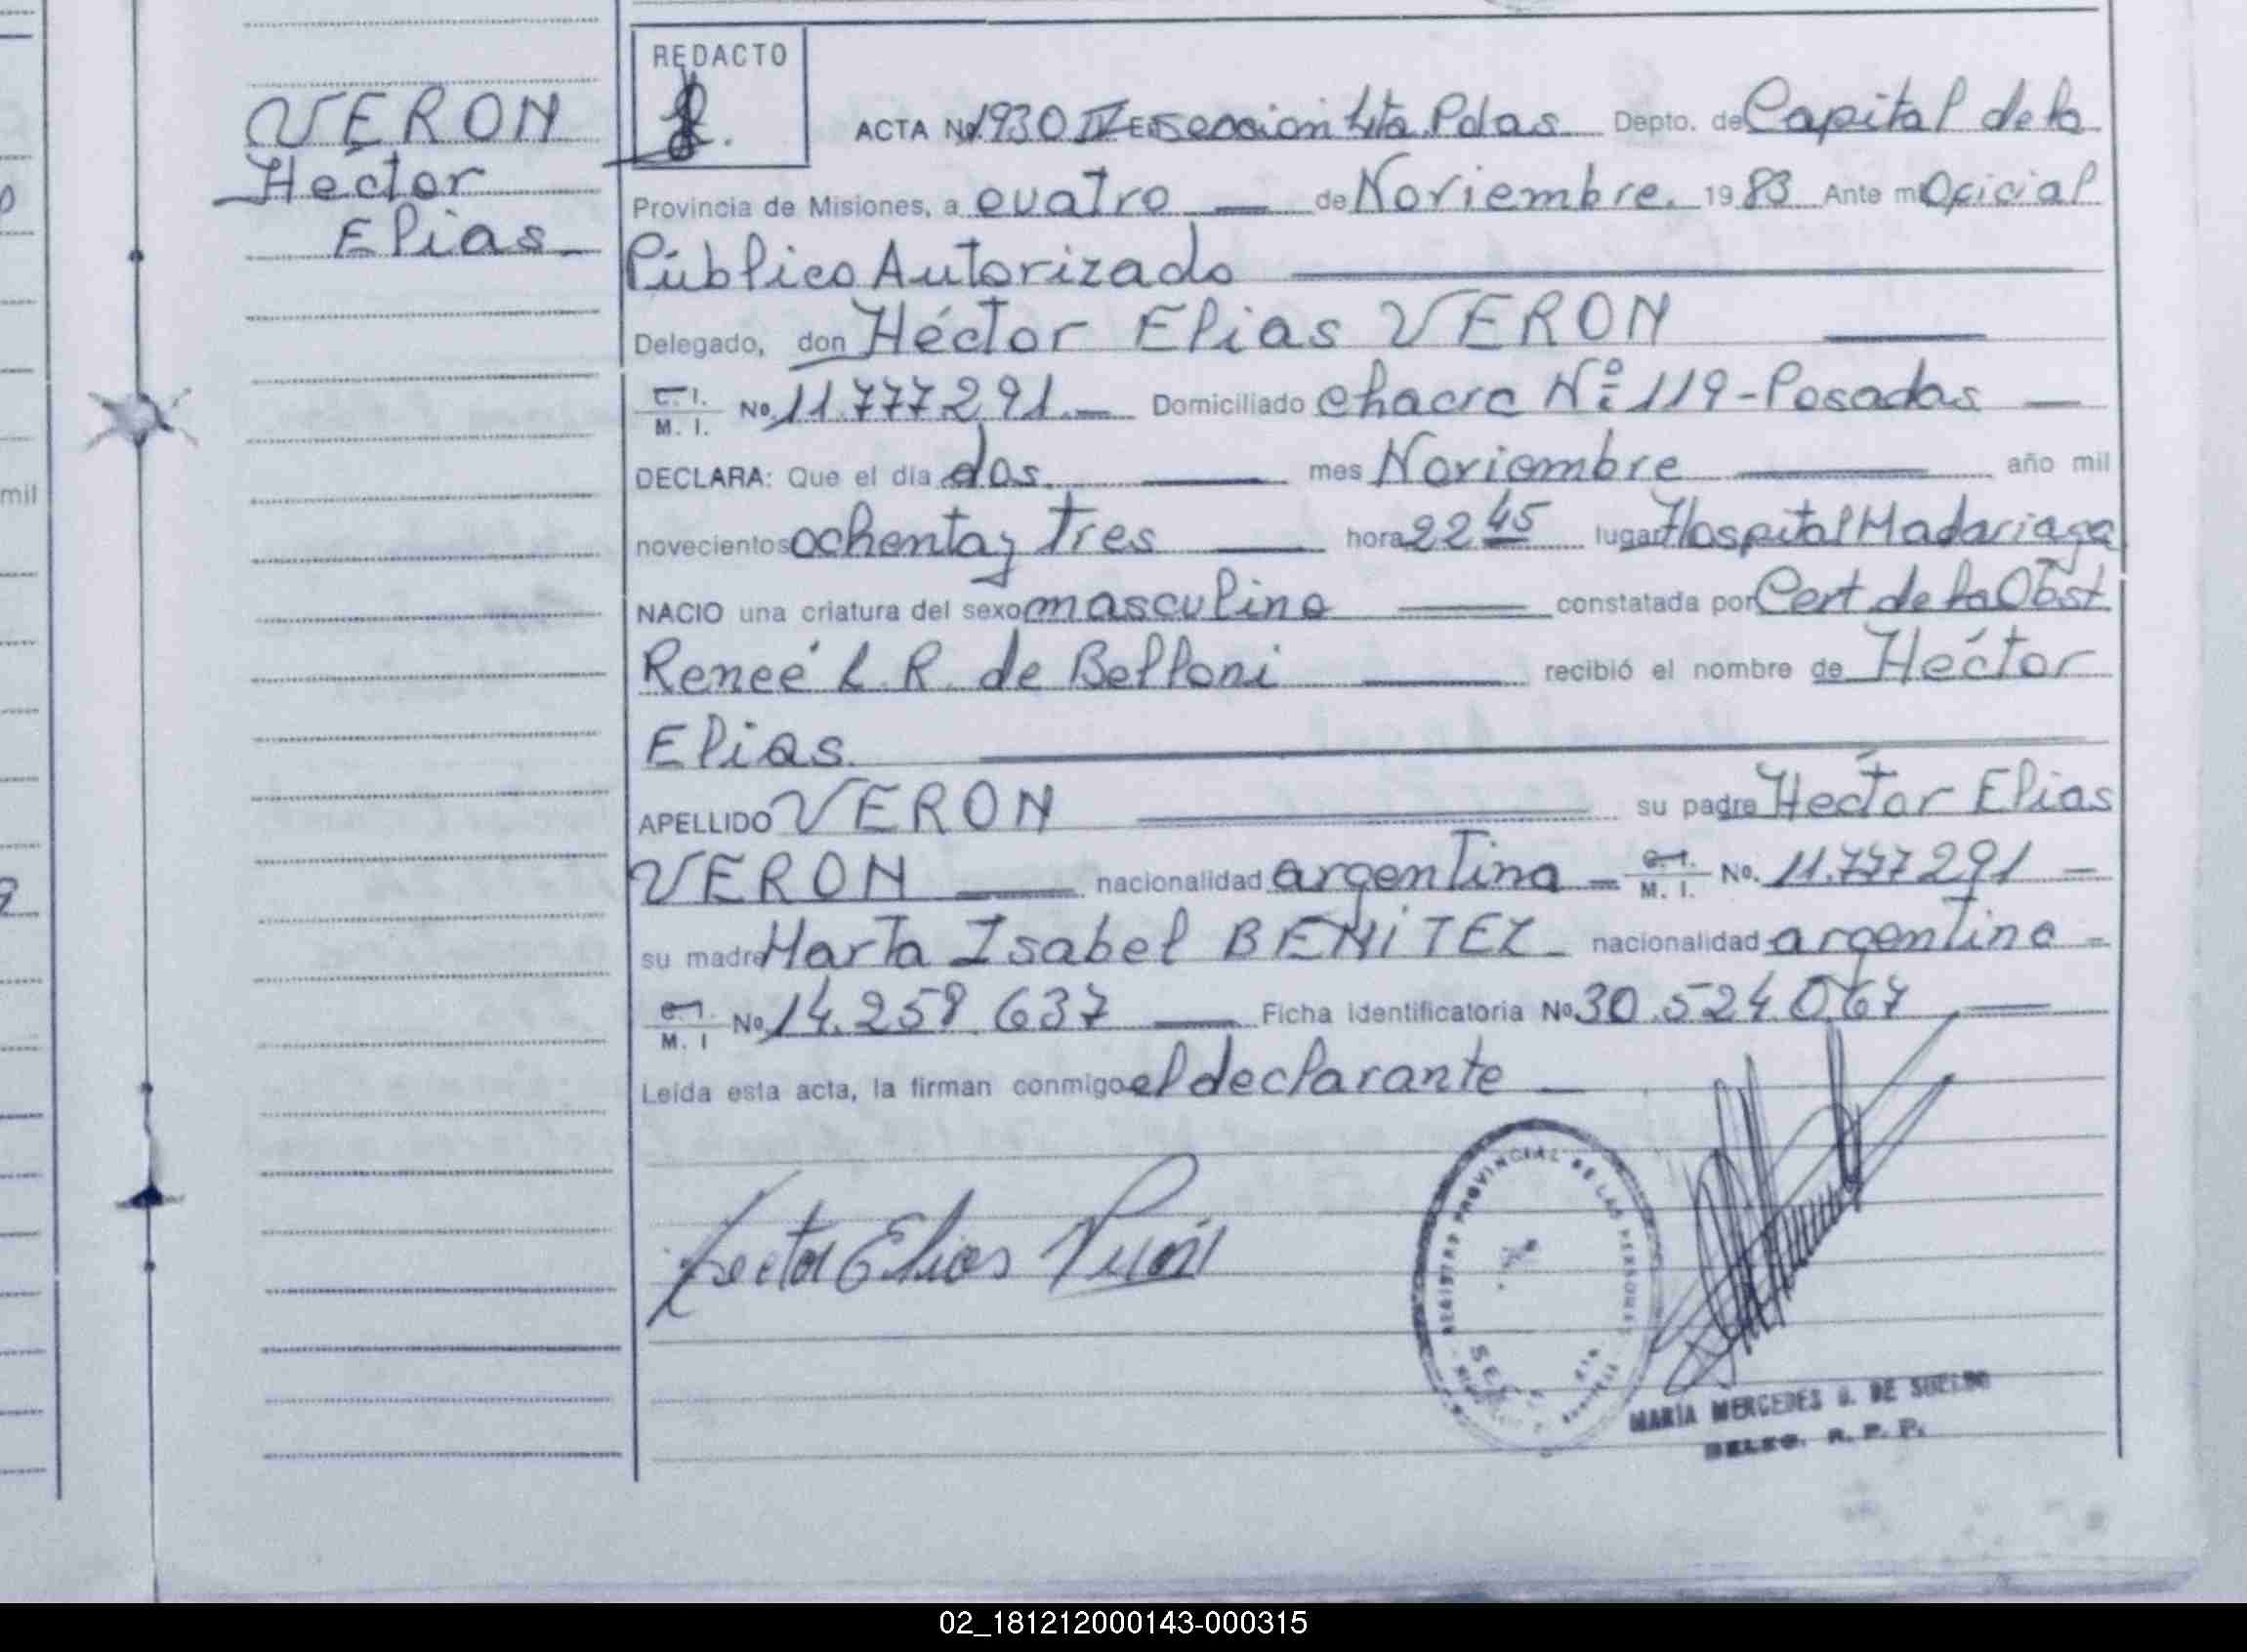 VERON
Hector
Elias
REDACTO
ACTA No. 1930 IV EN sección 4ta. Pdas Depto. de Capital de la
Provincia de Misiones, a cuatro de Noviembre. 1983 Ante mi Oficial
Público Autorizado
Delegado, don Héctor Elias VERON
C. I. M. I. No. 11.777.291 Domiciliado chacra Nº 119 - Posadas
DECLARA: Que el día dos mes Noviembre año mil
novecientos ochenta y tres hora 22 45 lugar Hospital Madariaga
NACIO una criatura del sexo masculino constatada por Cert de la Obst
Reneé L. R. de Belloni recibió el nombre de Héctor
Elias.
APELLIDO VERON su padre Héctor Elias
VERON nacionalidad argentina C. I. M. I. No. 11.777.291
su madre Marta Isabel BENITEZ nacionalidad argentina
C. I. M. I No. 14.258.637 Ficha Identificatoria No. 30.524.067
Leída esta acta, la firman conmigo el declarante
Hector Elias Verón
REGISTRO PROVINCIAL DE LAS PERSONAS
MARÍA MERCEDES G. DE SUELDO
DELEG. R. P. P.
mil
02_181212000143-000315